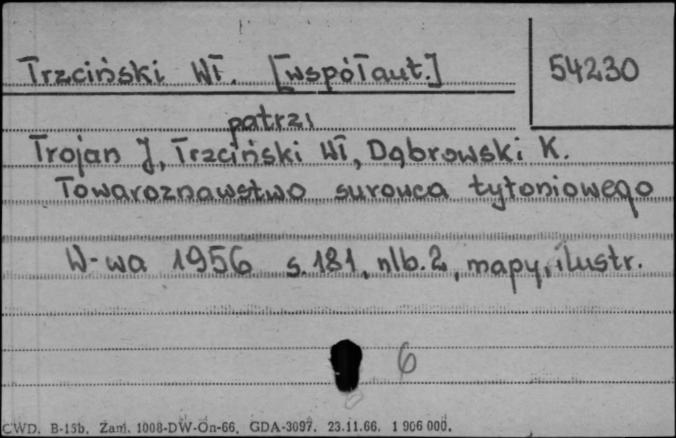 Trzciński Wł. [współaut.]
54230
patrz:
Trojan J, Trzciński Wł, Dąbrowski K.
Towaroznawstwo surowca tytoniowego
W-wa 1956 s. 181, nlb. 2, mapy, ilustr.
6
CWD. B-15b. Zam. 1008-DW-On-66. GDA-3097. 23.11.66. 1 906 000.